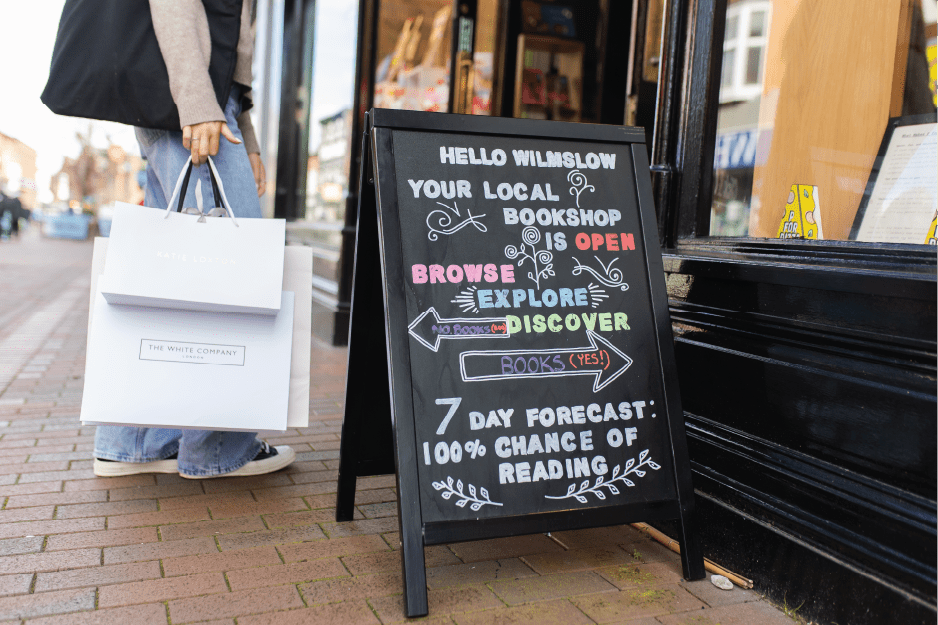 HELLO WILMSLOW
YOUR LOCAL
BOOKSHOP
IS OPEN
BROWSE
EXPLORE
DISCOVER
NO BOOKS
BOOKS (YES!)
7 DAY FORECAST:
100% CHANCE OF
READING
KATIE LOXTON
THE WHITE COMPANY
LONDON